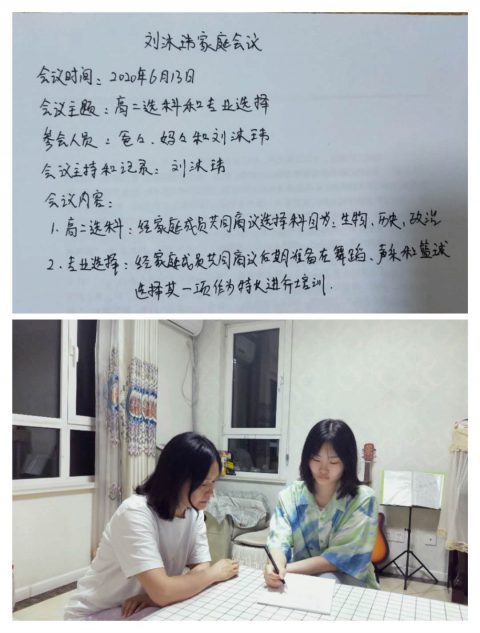 刘沐玮家庭会议
会议时间：2020年6月13日
会议主题：高二选科和专业选择
参会人员：爸々、妈々和刘沐玮
会议主持和记录：刘沐玮
会议内容：
1.高二选科：经家庭成员共同商议选择科目为：生物、历史、政治
2.专业选择：经家庭成员共同商议后期准备在舞蹈、声乐和篮球
选择其一项作为特长进行培训.